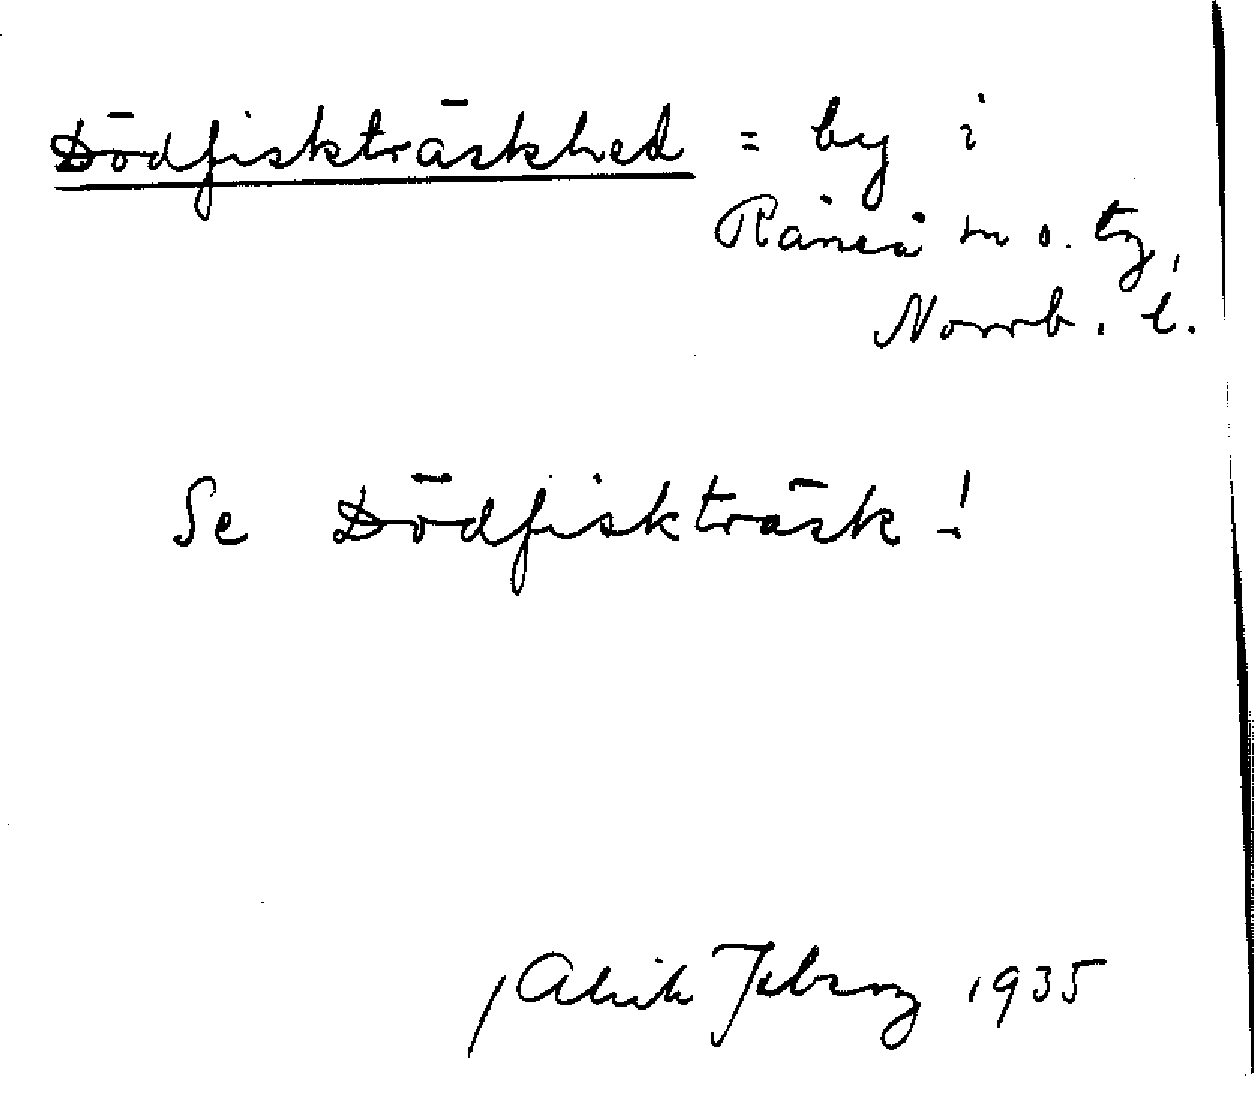 Dödfiskträskhed = by i
Råneå sn o. tg,
Norrb. l.
Se Dödfiskträsk!
/ Alrik 1935